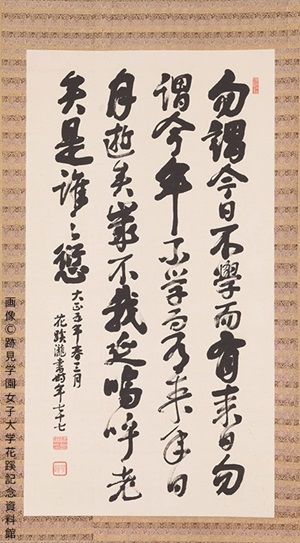 勿謂今日不學而有来日勿
謂今年不学而有来年日
月逝矣歳不我延嗚呼老
矣是誰之愆
大正五年春三月
花蹊瀧書時年七十七
画像©跡見学園女子大学花蹊記念資料館